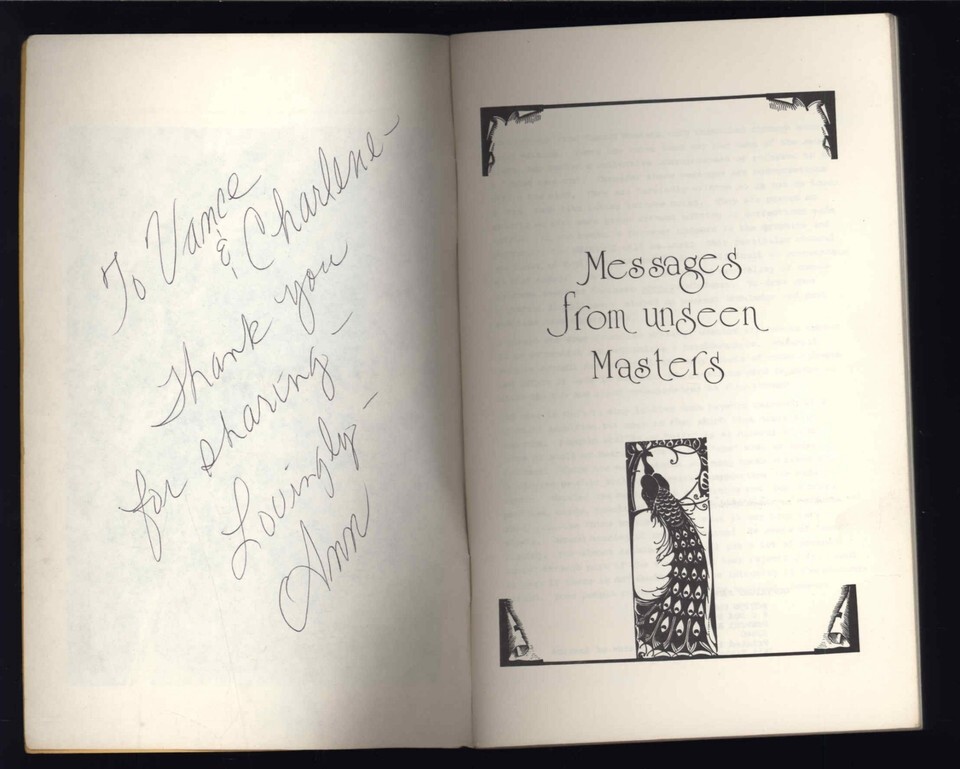 To Vance
& Charlene -
Thank you
for sharing -
Lovingly -
Ann
Messages
from unseen
Masters